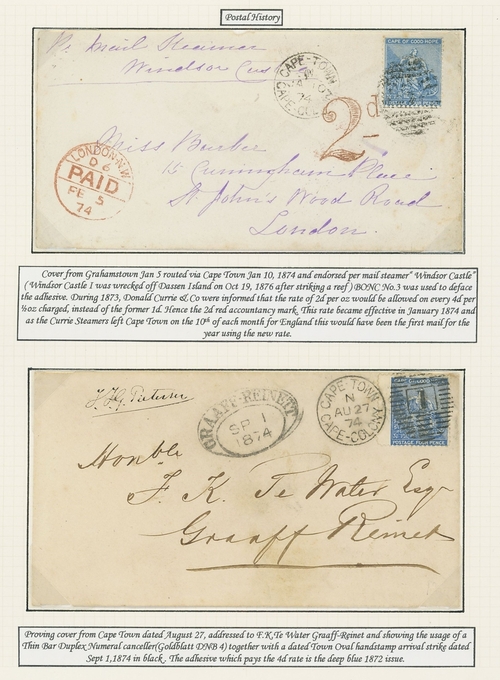 Postal History
Per Mail Steamer
Windsor Cas
CAPE-TOWN
JA 10
74
CAPE-COL
CAPE OF GOOD HOPE
2d
LONDON-N.W
D6
PAID
FE 5
74
Miss Burber
15 Cunningham Place
St John's Wood Road
London.
Cover from Grahamstown Jan 5 routed via Cape Town Jan 10, 1874 and endorsed per mail steamer" Windsor Castle"
( Windsor Castle I was wrecked off Dassen Island on Oct 19, 1876 after striking a reef) BONC No.3 was used to deface
the adhesive. During 1873, Donald Currie & Co were informed that the rate of 2d per oz would be allowed on every 4d per
½oz charged, instead of the former 1d. Hence the 2d red accountancy mark. This rate became effective in January 1874 and
as the Currie Steamers left Cape Town on the 10th of each month for England this would have been the first mail for the
year using the new rate.
GRAAFF-REINETT
SP 1
1874
CAPE-TOWN
N
AU 27
74
CAPE-COLONY
1
POSTAGE FOUR PENCE
Honble
F. K. Te Water Esqr
Graaff Reinet
Proving cover from Cape Town dated August 27, addressed to F.K.Te Water Graaff-Reinet and showing the usage of a
Thin Bar Duplex Numeral canceller(Goldblatt DNB 4) together with a dated Town Oval handstamp arrival strike dated
Sept 1,1874 in black. The adhesive which pays the 4d rate is the deep blue 1872 issue.